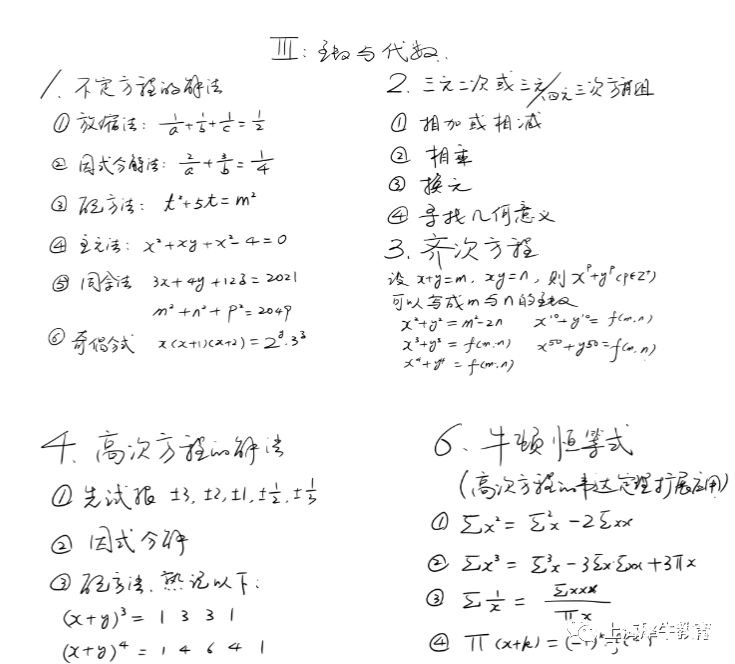 III: 函数与代数.
1. 不定方程的解法
① 放缩法: 1/a + 1/b + 1/c = 1/2
② 因式分解法: 2/a + 3/b = 1/4
③ 配方法: t²+5t=m²
④ 主元法: x²+xy+x²-4=0
⑤ 同余法 3x+4y+12z=2021
m²+n²+p²=2049
⑥ 奇偶分式 x(x+1)(x+2)=2^y·3^z
2. 三元二次或三元/四元三次方程组
① 相加或相减
② 相乘
③ 换元
④ 寻找几何意义
3. 齐次方程
设 x+y=m, xy=n, 则 x^p+y^p (p∈Z⁺)
可以写成m与n的函数
x²+y²=m²-2n x¹⁰+y¹⁰=f(m,n)
x³+y³=f(m,n) x⁵⁰+y⁵⁰=f(m,n)
x⁴+y⁴=f(m,n)
4. 高次方程的解法
① 先试根 ±3, ±2, ±1, ±1/2, ±1/3
② 因式分解
③ 配方法, 熟记以下:
(x+y)³= 1 3 3 1
(x+y)⁴= 1 4 6 4 1
6. 牛顿恒等式
(高次方程的韦达定理扩展应用)
① Σx² = Σ²x - 2Σxx
② Σx³ = Σ³x - 3Σx·Σxx + 3πx
③ Σ1/x = Σxxx/πx
④ π(x+k) =
上海犀牛教育